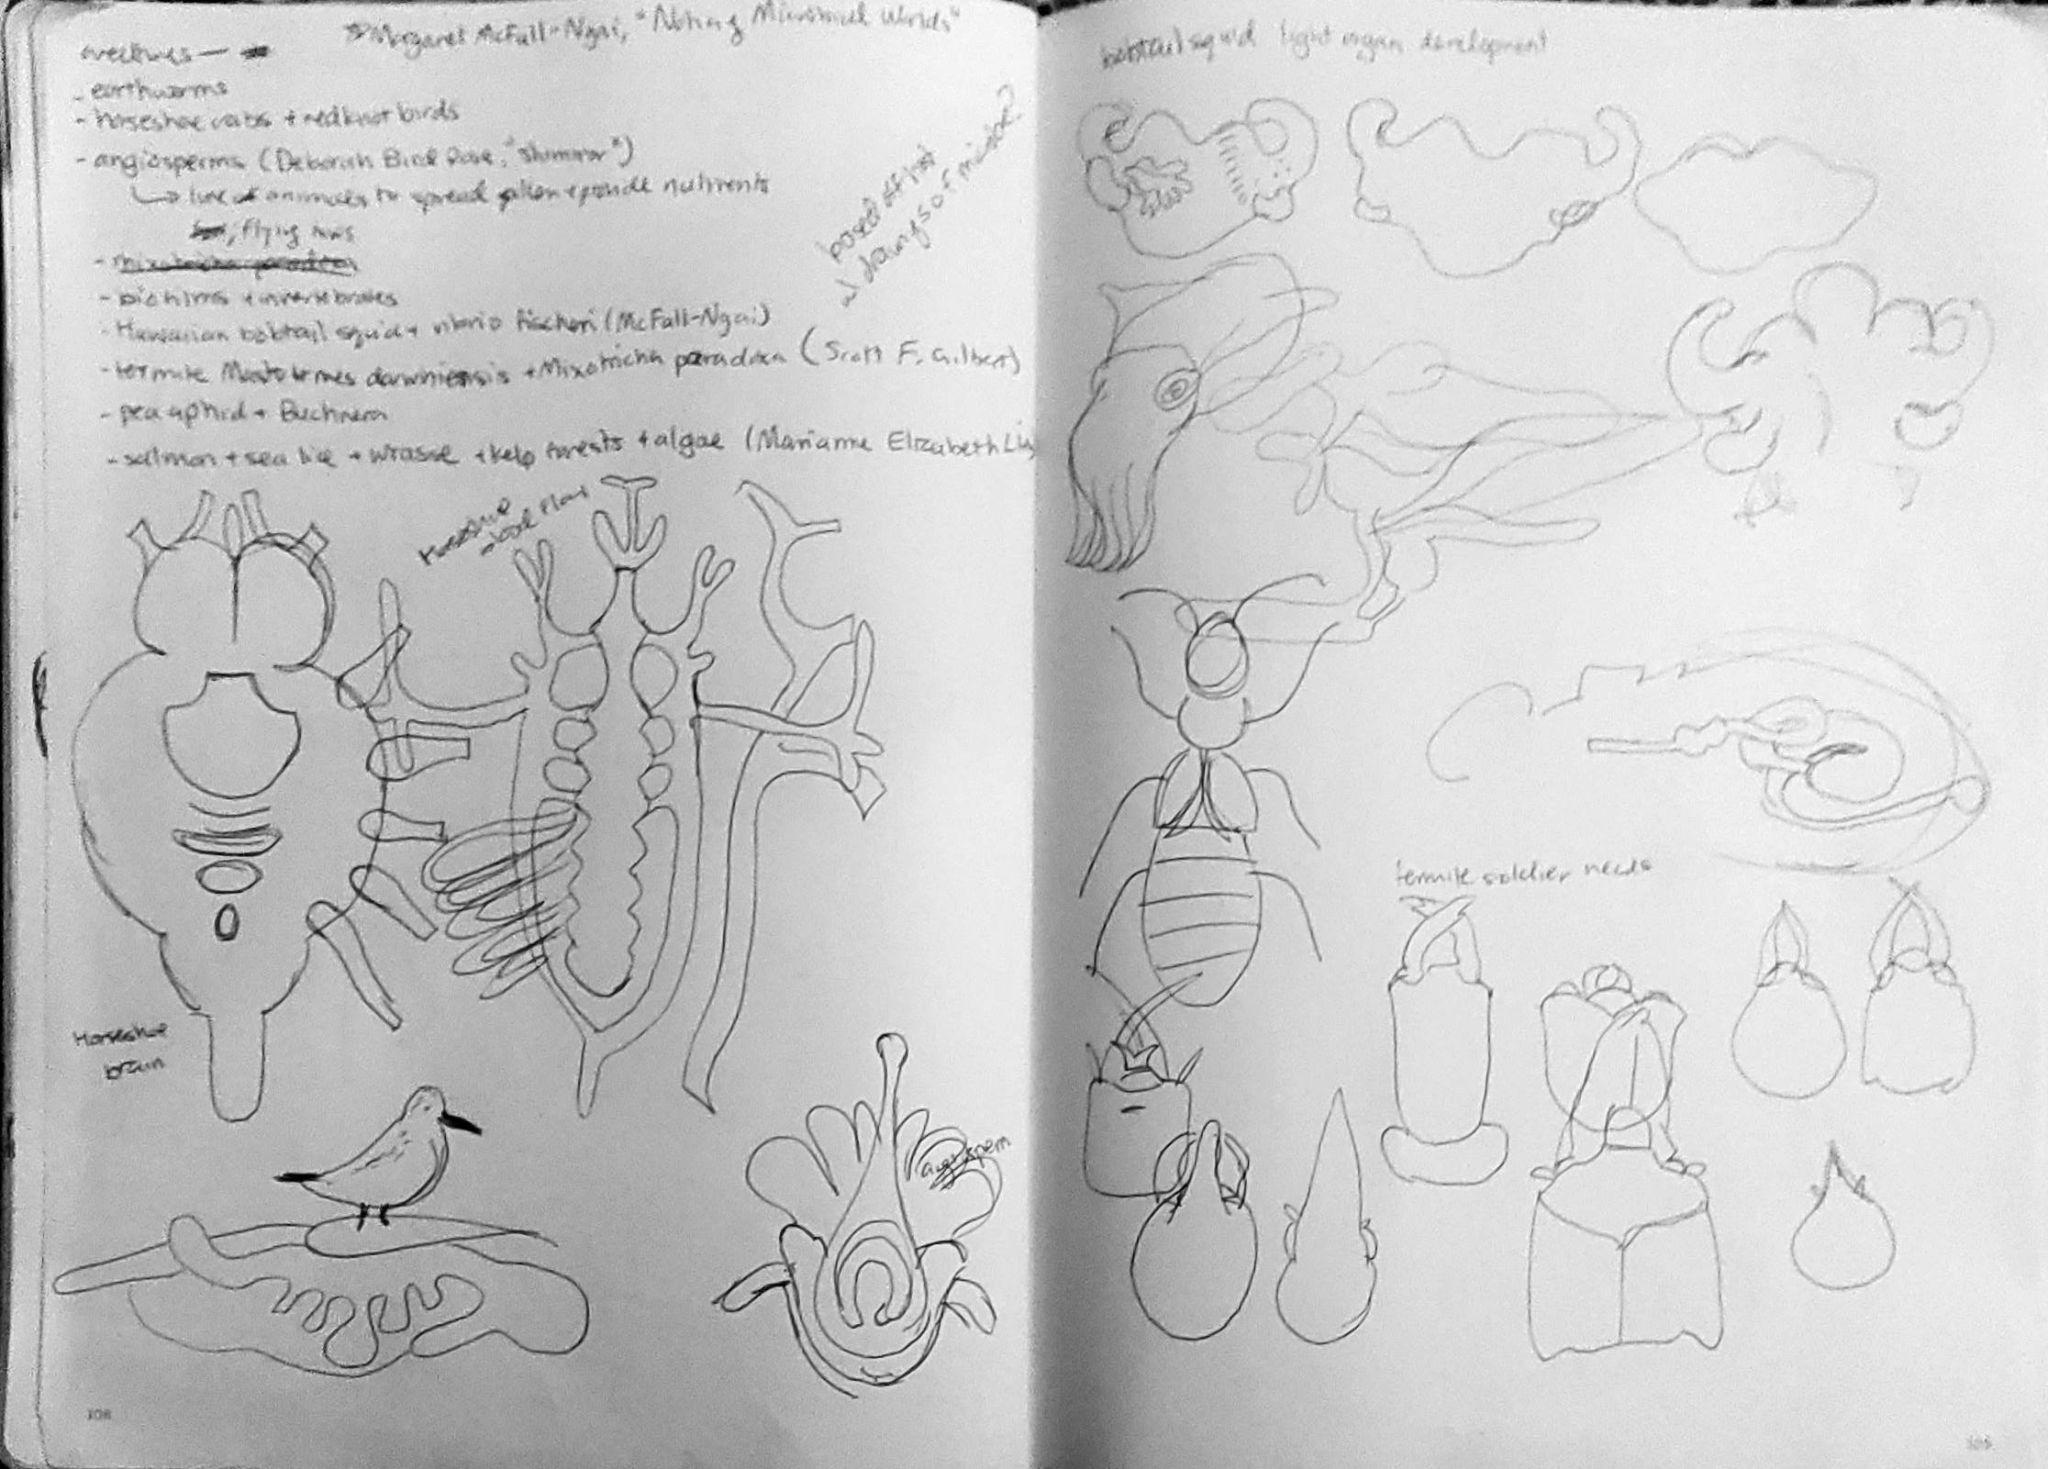 * Margaret McFall-Ngai, "Noticing Microbial Worlds"
- earthworms
- horseshoe crabs + red knot birds
- angiosperms (Deborah Bird Rose, "Shimmer")
↳ lure of animals to spread pollen + provide nutrients
flying foxes
- mixotricha paradoxa
- biofilms + invertebrates
- Hawaiian bobtail squid + vibrio fischeri (McFall-Ngai)
- termite Mastotermes darwiniensis + Mixotricha paradoxa (Scott F. Gilbert)
- pea aphid + Buchnera
- salmon + sea lice + wrasse + kelp forests + algae (Marianne Elizabeth Lien
based off list
w/ drawings of inside?
Horseshoe
blood flow
Horseshoe
brain
angiosperm
108
bobtail squid light organ development
termite soldier heads
109